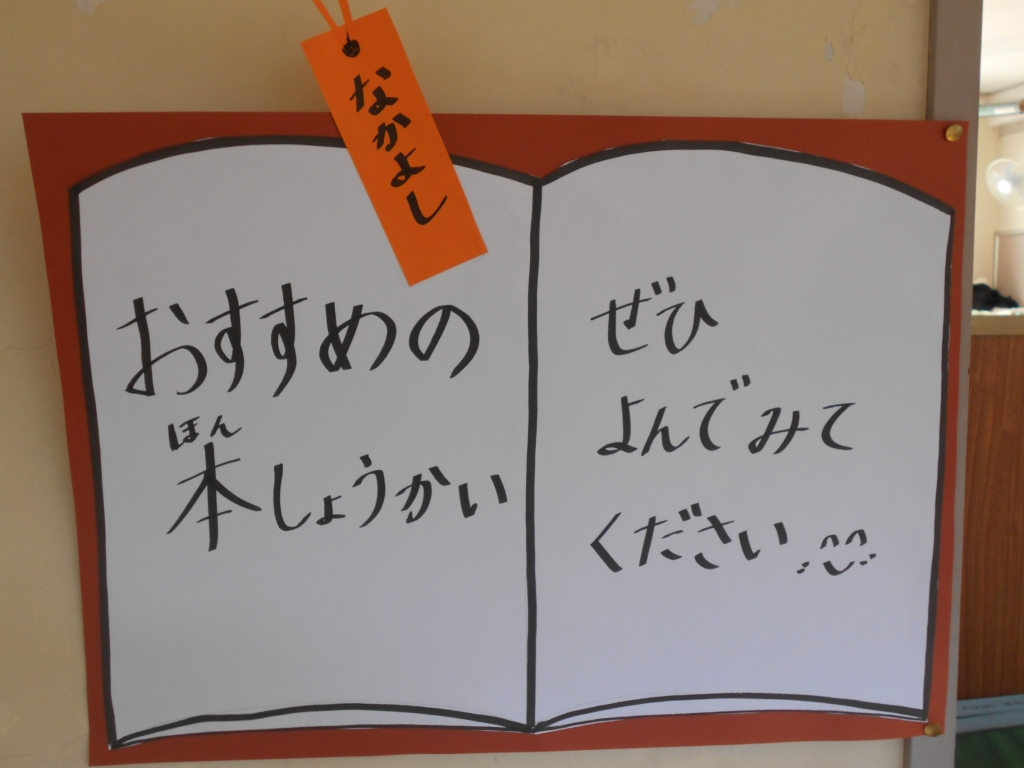 なかよし
おすすめの
ほん
本しょうかい
ぜひ
よんでみて
ください